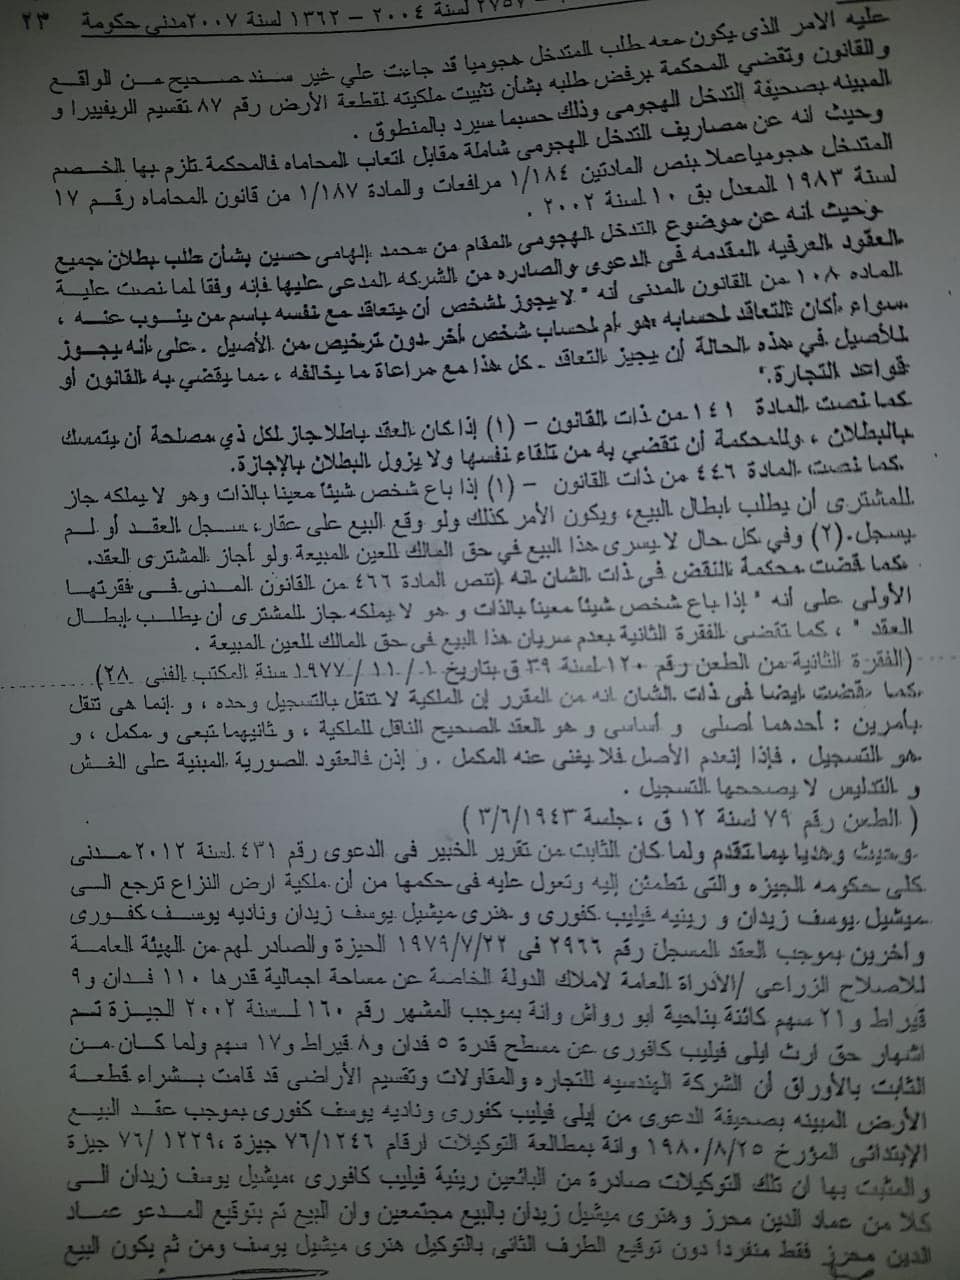 ٢٧٥٧ لسنة ٢٠٠٤ – ١٣٦٢ لسنة ٢٠٠٧ مدنى حكومة ٢٣
عليه الامر الذى يكون معه طلب المتدخل هجوميا قد جاءت علي غير سند صحيح من الواقع
والقانون وتقضي المحكمة برفض طلبه بشأن تثبيت ملكيته لقطعة الأرض رقم ٨٧ تقسيم الريفييرا و
المبينه بصحيفة التدخل الهجومى وذلك حسبما سيرد بالمنطوق .
وحيث انه عن مصاريف التدخل الهجومى شاملة مقابل اتعاب المحاماه فالمحكمة تلزم بها الخصم
المتدخل هجوميا عملا بنص المادتين ١/١٨٤ مرافعات والمادة ١/١٨٧ من قانون المحاماه رقم ١٧
لسنة ١٩٨٣ المعدل بق ١٠ لسنة ٢٠٠٢ .
وحيث انه عن موضوع التدخل الهجومى المقام من محمد إلهامى حسين بشأن طلب بطلان جميع
العقود العرفيه المقدمه فى الدعوى والصادره من الشركه المدعى عليها فإنه وفقا لما نصت علية
الماده ١٠٨ من القانون المدنى أنه " لا يجوز لشخص أن يتعاقد مع نفسه باسم من ينوب عنه ،
سواء أكان التعاقد لحسابه هو أم لحساب شخص أخر دون ترخيص من الأصيل . على أنه يجوز
للأصيل في هذه الحالة أن يجيز التعاقد . كل هذا مع مراعاة ما يخالفه ، مما يقضي به القانون أو
قواعد التجارة."
كما نصت المادة ١٤١ من ذات القانون – (١) إذا كان العقد باطلا جاز لكل ذي مصلحة أن يتمسك
بالبطلان ، وللمحكمة أن تقضي به من تلقاء نفسها ولا يزول البطلان بالإجازة.
كما نصت المادة ٤٤٦ من ذات القانون – (١) إذا باع شخص شيئا معينا بالذات وهو لا يملكه جاز
للمشترى أن يطلب ابطال البيع، ويكون الأمر كذلك ولو وقع البيع على عقار، سجل العقد أو لم
يسجل. (٢) وفي كل حال لا يسرى هذا البيع في حق المالك للعين المبيعة ولو أجاز المشترى العقد.
كما قضت محكمة النقض فى ذات الشان انه (تنص المادة ٤٦٦ من القانون المدنى فى فقرتها
الأولى على أنه " إذا باع شخص شيئاً معيناً بالذات و هو لا يملكه جاز للمشترى أن يطلب إبطال
العقد " ، كما تقضى الفقرة الثانية بعدم سريان هذا البيع فى حق المالك للعين المبيعة .
(الفقرة الثانية من الطعن رقم ١٢٠ لسنة ٣٩ ق بتاريخ ١ / ١١ / ١٩٧٧ سنة المكتب الفنى ٢٨)
كما قضت ايضا فى ذات الشان انه من المقرر إن الملكية لا تنتقل بالتسجيل وحده ، و إنما هى تنتقل
بأمرين : أحدهما أصلى و أساسى و هو العقد الصحيح الناقل للملكية ، و ثانيهما تبعى و مكمل ، و
هو التسجيل . فإذا إنعدم الأصل فلا يغنى عنه المكمل . و إذن فالعقود الصورية المبنية على الغش
و التدليس لا يصححها التسجيل .
( الطعن رقم ٧٩ لسنة ١٢ ق ، جلسة ٣/٦/١٩٤٣ )
وحيث وهديا بما تقدم ولما كان الثابت من تقرير الخبير فى الدعوى رقم ٤٣١ لسنة ٢٠١٢ مدنى
كلى حكومه الجيزه والتى تطمئن إليه وتعول عليه فى حكمها من أن ملكية ارض النزاع ترجع الى
ميشيل يوسف زيدان و رينيه فيليب كفورى و هنرى ميشيل يوسف زيدان وناديه يوسف كفورى
واخرين بموجب العقد المسجل رقم ٢٩٦٦ فى ١٩٧٩/٧/٢٢ الجيزة والصادر لهم من الهيئة العامة
للاصلاح الزراعى /الأدراة العامة لاملاك الدولة الخاصة عن مساحة اجمالية قدرها ١١٠ فدان و٩
قيراط و٢١ سهم كائنة بناحية ابو رواش وانة بموجب المشهر رقم ١٦٠ لسنة ٢٠٠٢ الجيزة تم
اشهار حق ارث ايلى فيليب كافورى عن مسطح قدرة ٥ فدان و٨ قيراط و١٧ سهم ولما كان من
الثابت بالأوراق أن الشركة الهندسيه للتجاره والمقاولات وتقسيم الأراضى قد قامت بشراء قطعة
الأرض المبينه بصحيفة الدعوى من إيلى فيليب كفورى وناديه يوسف كفورى بموجب عقد البيع
الإبتدائى المؤرخ ١٩٨٠/٨/٢٥ وانة بمطالعة التوكيلات ارقام ٧٦/١٢٤٦ جيزة ،٧٦/١٢٢٩ جيزة
والمثبت بها ان تلك التوكيلات صادرة من البائعين رينية فيليب كافورى ،ميشيل يوسف زيدان الى
كلا من عماد الدين محرز وهنرى ميشيل زيدان بالبيع مجتمعين وان البيع تم بتوقيع المدعو عماد
الدين محرز فقط منفردا دون توقيع الطرف الثانى بالتوكيل هنرى ميشيل يوسف ومن ثم يكون البيع